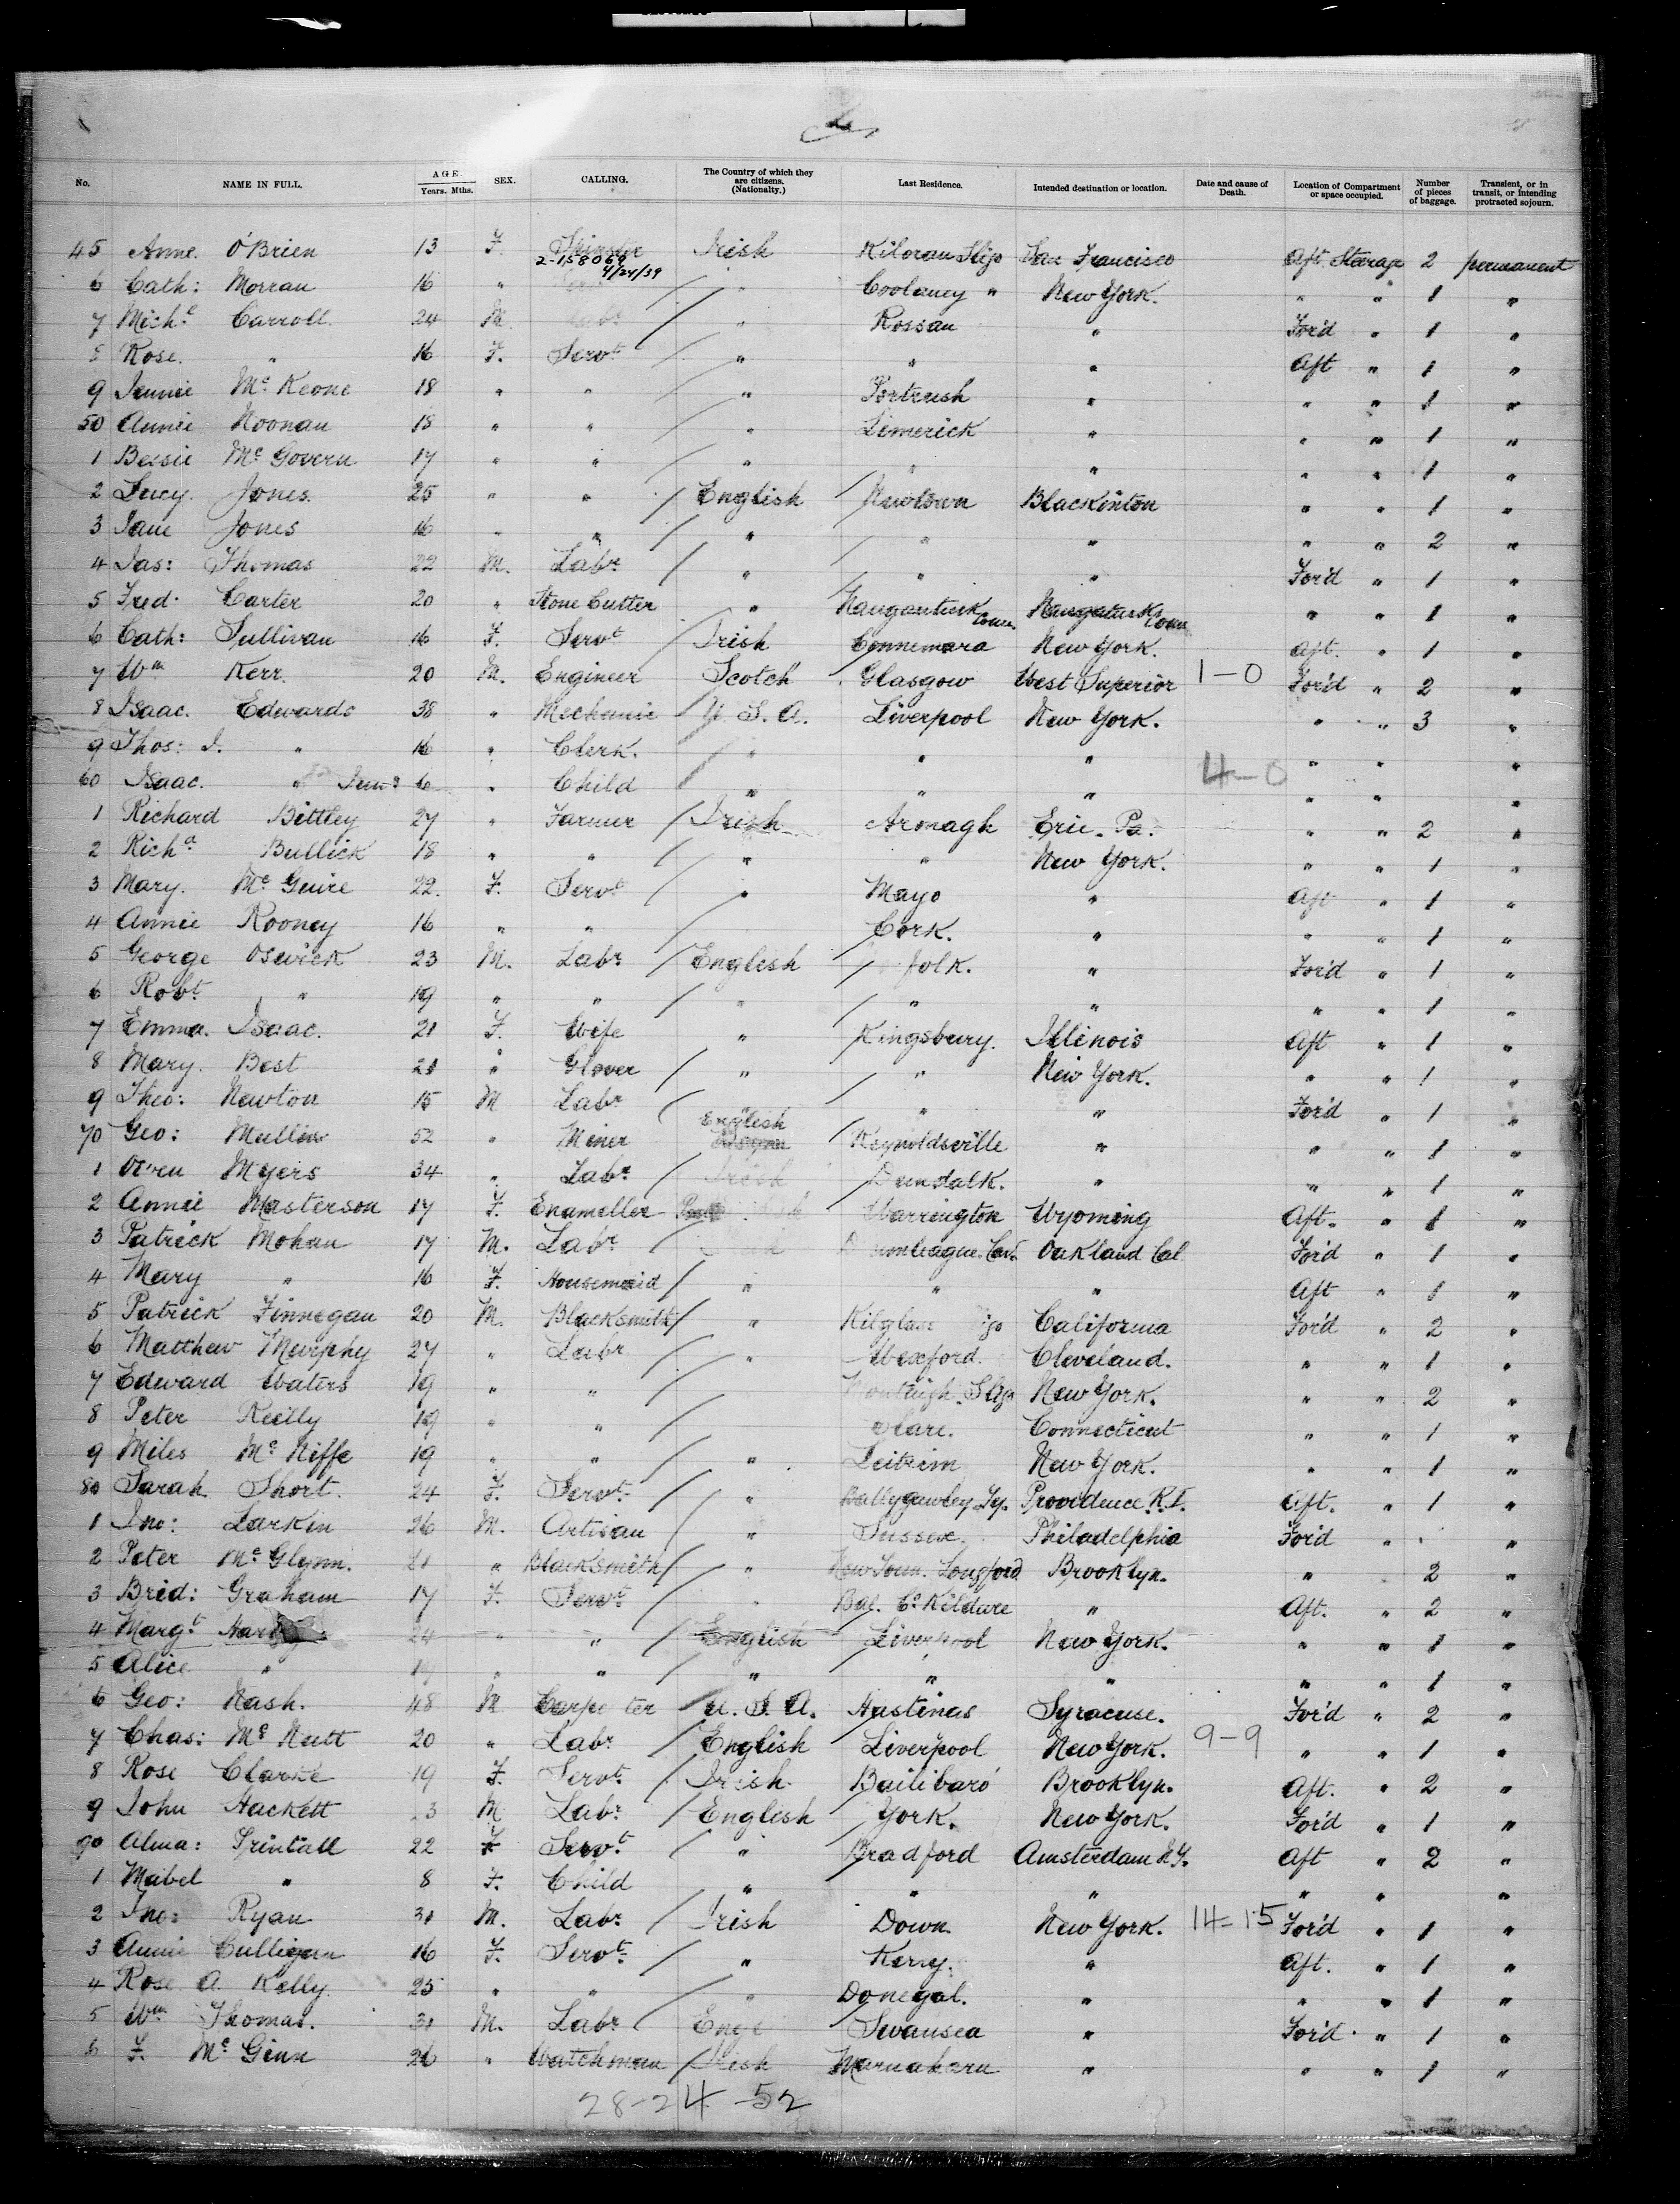 No. NAME IN FULL. AGE. Years. Mths. SEX. CALLING. The Country of which they are citizens. (Nationality.) Last Residence. Intended destination or location. Date and cause of Death. Location of Compartment or space occupied. Number of pieces of baggage. Transient, or in transit, or intending protracted sojourn.
45 Anne O'Brien 13 F. Spinster Irish Kiloran Sligo San Francisco Aft. Steerage 2 permanent
2-158069 4/24/39
6 Cath: Morran 16 " " Coolaney " New York. " " 1 "
7 Michl Carroll 24 M. Labr " Rossan " For'd " 1 "
8 Rose. " 16 F. Servt " " " Aft " 1 "
9 Jennie McKeone 18 " " " Portrush " " " 1 "
50 Annie Noonan 18 " " " Limerick " " " 1 "
1 Bessie McGovern 17 " " " " " " " 1 "
2 Lucy. Jones. 25 " " English Newtown Blackinton " " 1 "
3 Jane Jones 16 " " " " " " " 2 "
4 Jas: Thomas 22 M. Labr " " " For'd " 1 "
5 Fred. Carter 20 " Stone Cutter " Naugantuck Conn. Naugatuck Conn " " 1 "
6 Cath: Sullivan 16 F. Servt Irish Connemara New York. Aft. " 1 "
7 Wm Kerr. 20 M. Engineer Scotch Glasgow West Superior 1-0 For'd " 2 "
8 Isaac. Edwards 38 " Mechanic U. S. A. Liverpool New York. " " 3 "
9 Thos: J. " 16 " Clerk. " " " " " "
60 Isaac. " Junr 6 " Child " " " 4-0 " " "
1 Richard Bittley 27 " Farmer Irish Armagh Erie. Pa. " " 2 "
2 Richd Bullick 18 " " " " New York. " " 1 "
3 Mary. McGuire 22. F. Servt " Mayo " Aft " 1 "
4 Annie Rooney 16 " " Cork. " " " 1 "
5 George Oswick 23 M. Labr English folk. " For'd " 1 "
6 Robt " 19 " " " " " " " 1 "
7 Emma. Isaac. 21 F. Wife " Kingsbury. Illinois Aft " 1 "
8 Mary. Best 21 " Glover " " New York. " " 1 "
9 Theo: Newton 15 M Labr " " " For'd " 1 "
70 Geo: Mullin 52 " Miner English Reynoldsville " " " 1 "
1 Owen Myers 34 " Labr Irish Dundalk. " " " 1 "
2 Annie Masterson 17 F. Enameller Warrington Wyoming Aft. " 1 "
3 Patrick Mohan 17 M. Labr Oakland Cal For'd " 1 "
4 Mary " 16 F. Housemaid " " " Aft " 1 "
5 Patrick Finnegan 20 M. Blacksmith " California For'd " 2 "
6 Matthew Murphy 27 " Labr " Wexford. Cleveland. " " 1 "
7 Edward Waters 19 " " " Sligo New York. " " 2 "
8 Peter Reilly 19 " " Clare. Connecticut " " 1 "
9 Miles McNiffe 19 " " " Leitrim New York. " " 1 "
80 Sarah Short. 24 F. Servt " Ballygawley Ty. Providence R.I. Aft. " 1 "
1 Jno: Larkin 26 M. Artisan " Sussex. Philadelphia For'd " "
2 Peter McGlynn. 21 " Blacksmith " New Town. Longford Brooklyn. " 2 "
3 Brid: Graham 17 F. Servt " Bal. Co Kildare " Aft. " 2 "
4 Margt 24 " " English Liverpool New York. " " 1 "
5 Alice " 19 " " " " " " " 1 "
6 Geo: Nash. 48 M Carpenter U. S. A. Hastings Syracuse. For'd " 2 "
7 Chas: McNutt 20 " Labr English Liverpool New York. 9-9 " " 1 "
8 Rose Clarke 19 F. Servt Irish. Bailibaro Brooklyn. Aft. " 2 "
9 John Hackett 3 M Labr English York. New York. For'd " 1 "
90 Alma: Printall 22 F Servt " Bradford Amsterdam N.Y. Aft " 2 "
1 Mabel " 8 F. Child " " " " " "
2 Jno: Ryan 31 M. Labr Irish Down New York. 14-15 For'd " 1 "
3 Annie Culligan 16 F. Servt " Kerry. " Aft. " 1 "
4 Rose A. Kelly. 25 " " " Donegal. " " " 1 "
5 Wm Thomas. 31 M. Labr Engl Swansea " For'd " 1 "
6 F. McGinn 26 " Watchman Irish " " " 1 "
28-24-52